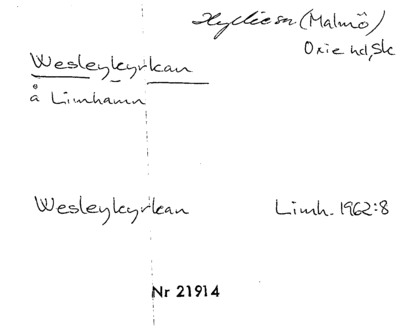 Hyllie sn (Malmö)
Oxie hd, Sk
Wesleykyrkan
å Limhamn
Wesleykyrkan Limh. 1962:8
Nr 21914